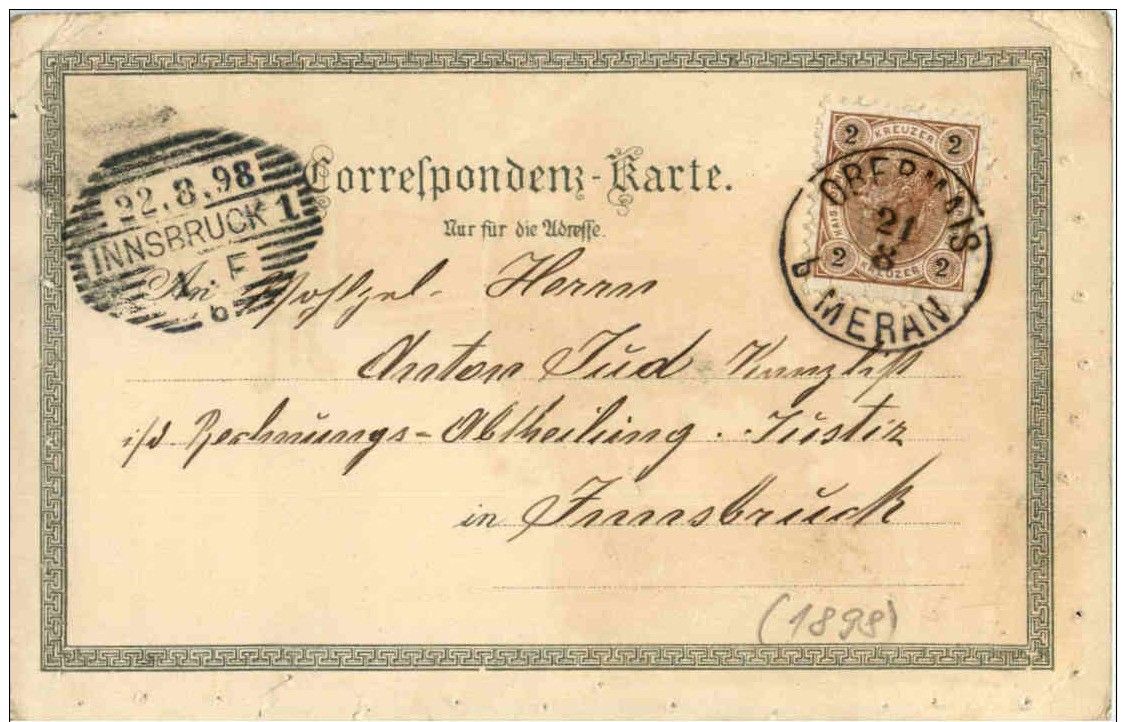 Correspondenz-Karte.
Nur für die Adresse.
22.8.98
INNSBRUCK 1
F
6
2 KREUZER 2
2 KREUZER 2
OBERMAIS
21
8
b. MERAN
An Wohlgel. Herrn
Anton Jud Kanzlist
i/d Rechnungs-Abtheilung . Justiz
in Innsbruck
(1898)